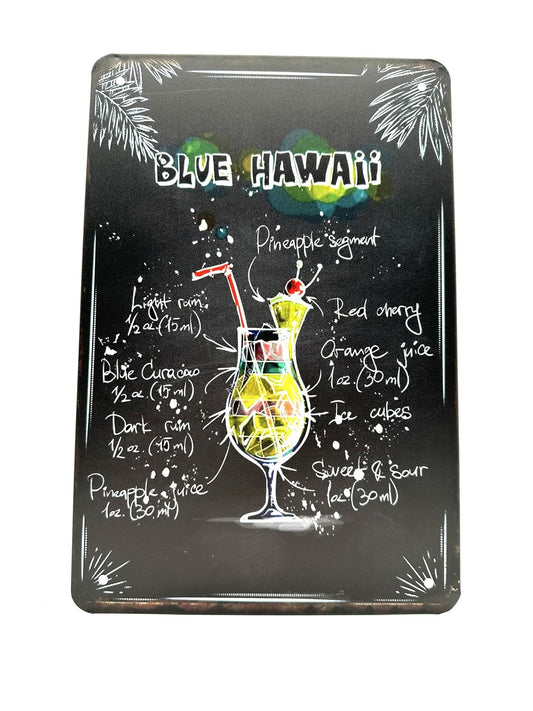 BLUE HAWAii
Pineapple segment
Light rum
1/2 oz. (15 ml)
Blue Curacao
1/2 oz. (15 ml)
Dark rum
1/2 oz. (15 ml)
Pineapple juice
1 oz. (30 ml)
Red cherry
Orange juice
1 oz. (30 ml)
Ice cubes
Sweet & Sour
1 oz. (30 ml)